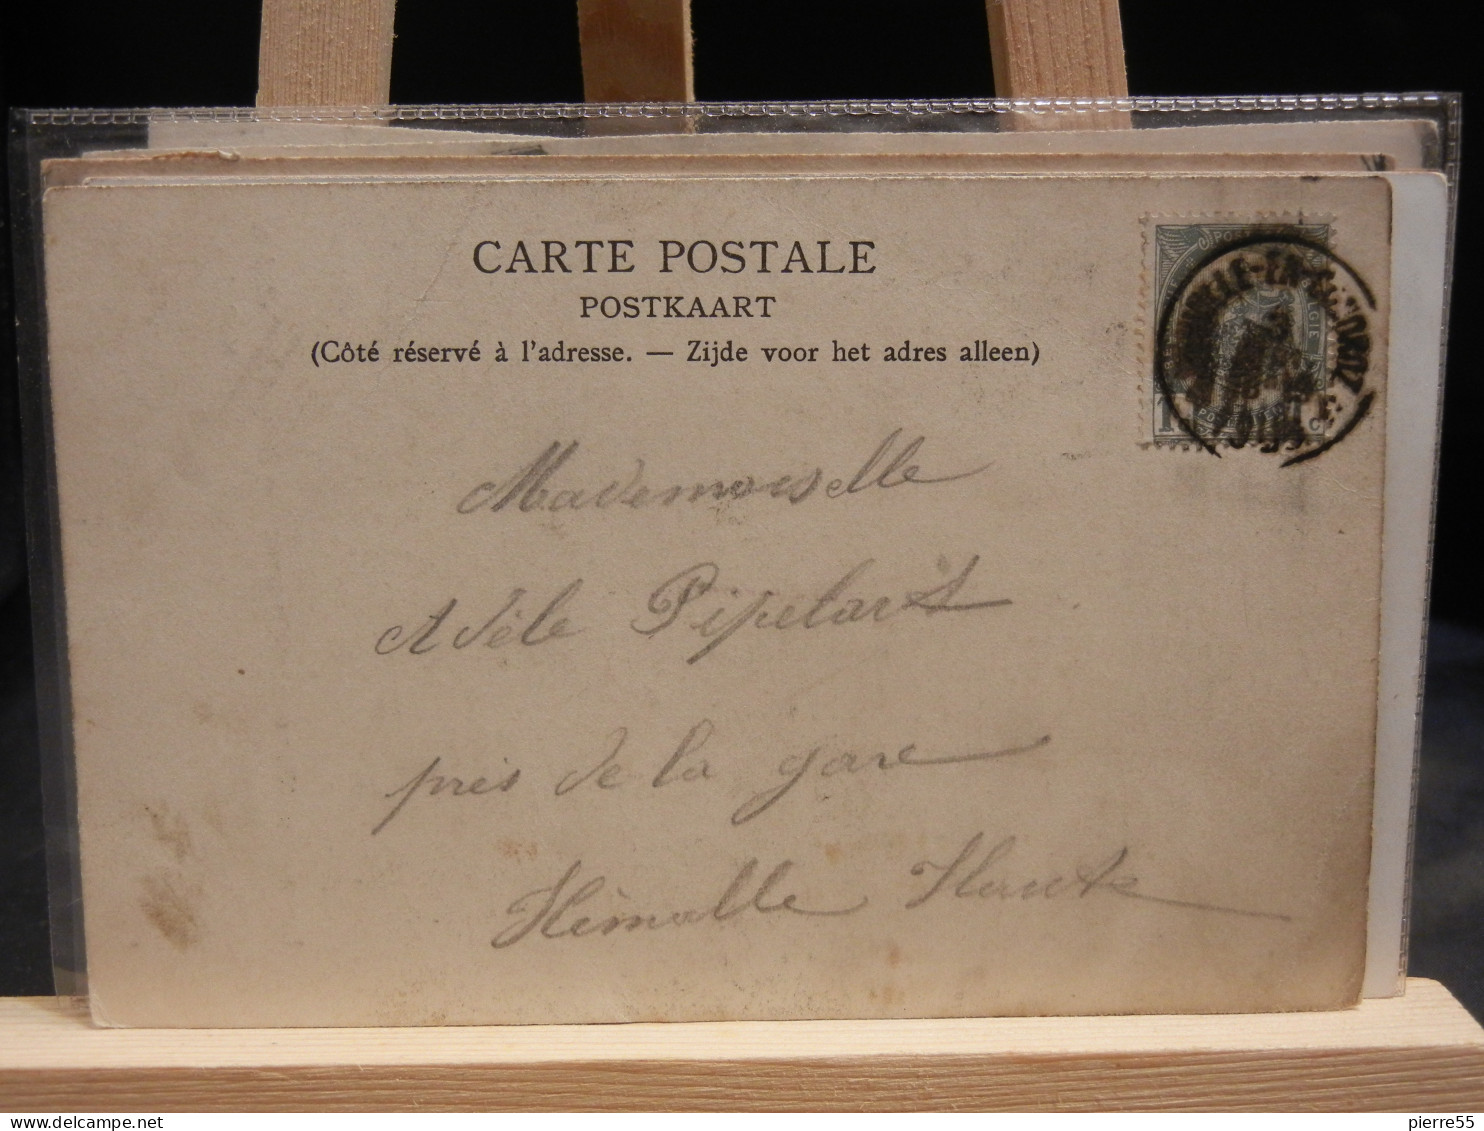 CARTE POSTALE
POSTKAART
(Côté réservé à l'adresse. — Zijde voor het adres alleen)
Mademoiselle
Adèle Pipelart
près de la gare
Hèmalle Haute
pierre55